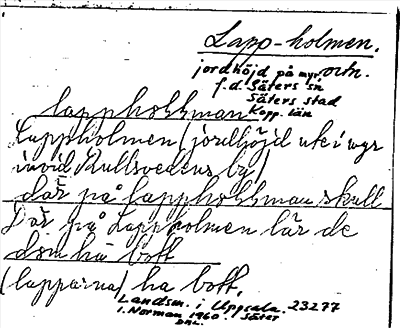 Lapp-holmen.
jordhöjd på myr, ortn.
f.d. Säters sn
Säters stad
Kopp. län
lappholman
Lappholmen (jordhöjd ute i myr
invid Mullsvedens by)
där på lappholman skull
Där på Lappholmen lär de
dom ha bott
(lapparna) ha bott.
Landsm. i Uppsala. 23277
I. Norman 1960. Säter
DAL.